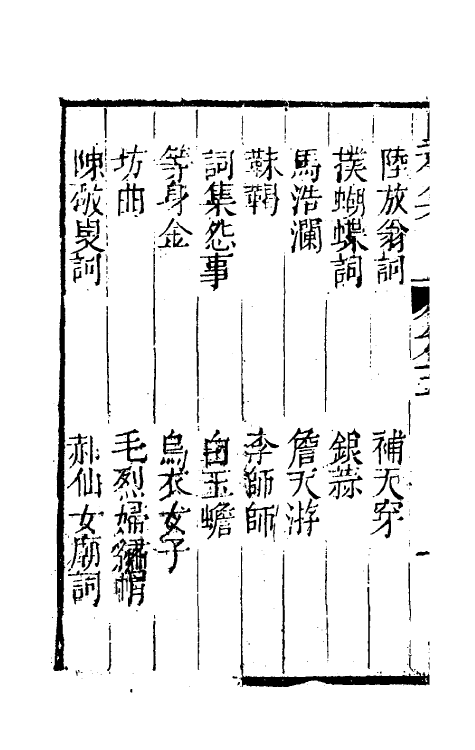 陸放翁詞　補天穿
撲蝴蝶詞　銀蒜
馬浩瀾　詹天游
靺鞨　李師師
詞集怨事　白玉蟾
等身金　烏衣女子
坊曲　毛烈婦繡帽
陳敬叟詞　郝仙女廟詞